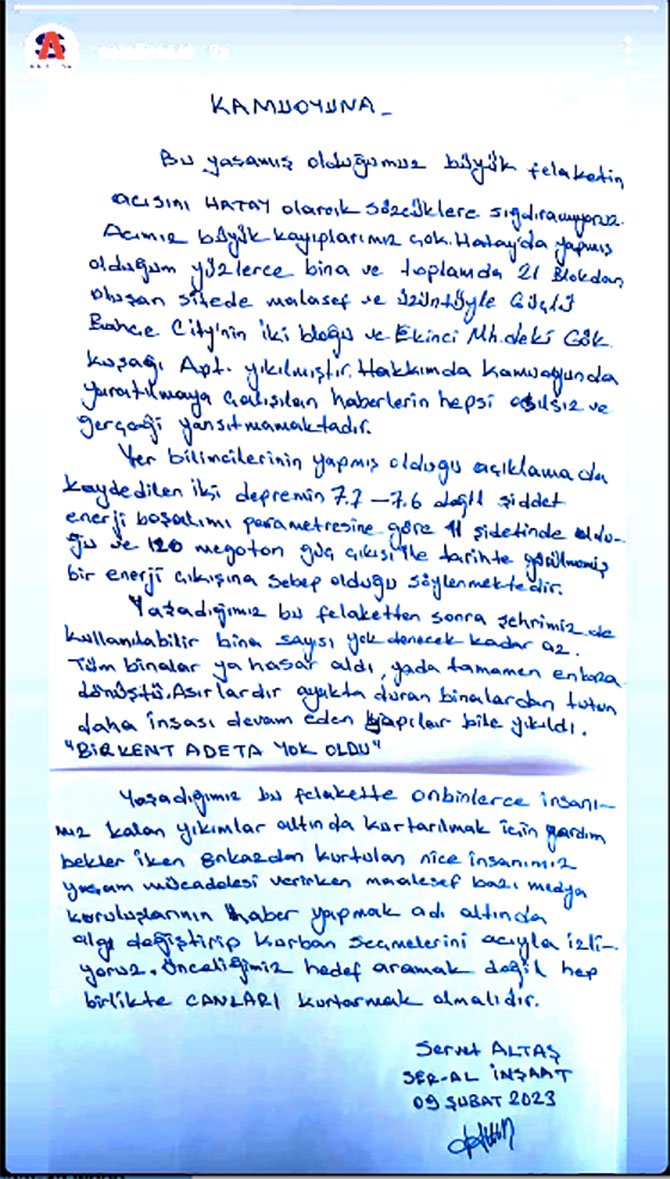 KAMUOYUNA_
Bu yaşamış olduğumuz büyük felaketin
acısını HATAY olarak sözcüklere sığdıramıyoruz.
Acımız büyük kayıplarımız çok. Hatay'da yapmış
olduğum yüzlerce bina ve toplamda 21 Blokdan
oluşan sitede malasef ve üzüntüyle Güçlü
Bahçe City'nin iki bloğu ve Ekinci Mh.deki Gök
kuşağı Apt. yıkılmıştır. Hakkımda kamuoğunda
yaratılmaya çalışılan haberlerin hepsi asılsız ve
gerçeği yansıtmamaktadır.
Yer bilimcilerinin yapmış olduğu açıklamada
kaydedilen iki depremin 7.7 – 7.6 değil şiddet
enerji boşalımı parametresine göre 11 şidetinde oldu-
ğu ve 120 megaton güç çıkışı ile tarihte görülmemiş
bir enerji çıkışına sebep olduğu söylenmektedir.
Yaşadığımız bu felaketten sonra şehrimiz de
kullanılabilir bina sayısı yok denecek kadar az.
Tüm binalar ya hasar aldı, yada tamamen enkaza
dönüştü. Asırlardır ayakta duran binalardan tutun
daha insası devam eden yapılar bile yıkıldı.
"BİR KENT ADETA YOK OLDU"
Yaşadığımız bu felakette onbinlerce insanı-
mız kalan yıkımlar altında kurtarılmak için yardım
bekler iken enkazdan kurtulan nice insanımız
yaşam mücadelesi verirken maalesef bazı medya
kuruluşlarının haber yapmak adı altında
algı değiştirip kurban seçmelerini acıyla izli-
yoruz. Önceliğimiz hedef aramak değil hep
birlikte CANLARI kurtarmak olmalıdır.
Servet ALTAŞ
SER-AL İNŞAAT
09 ŞUBAT 2023